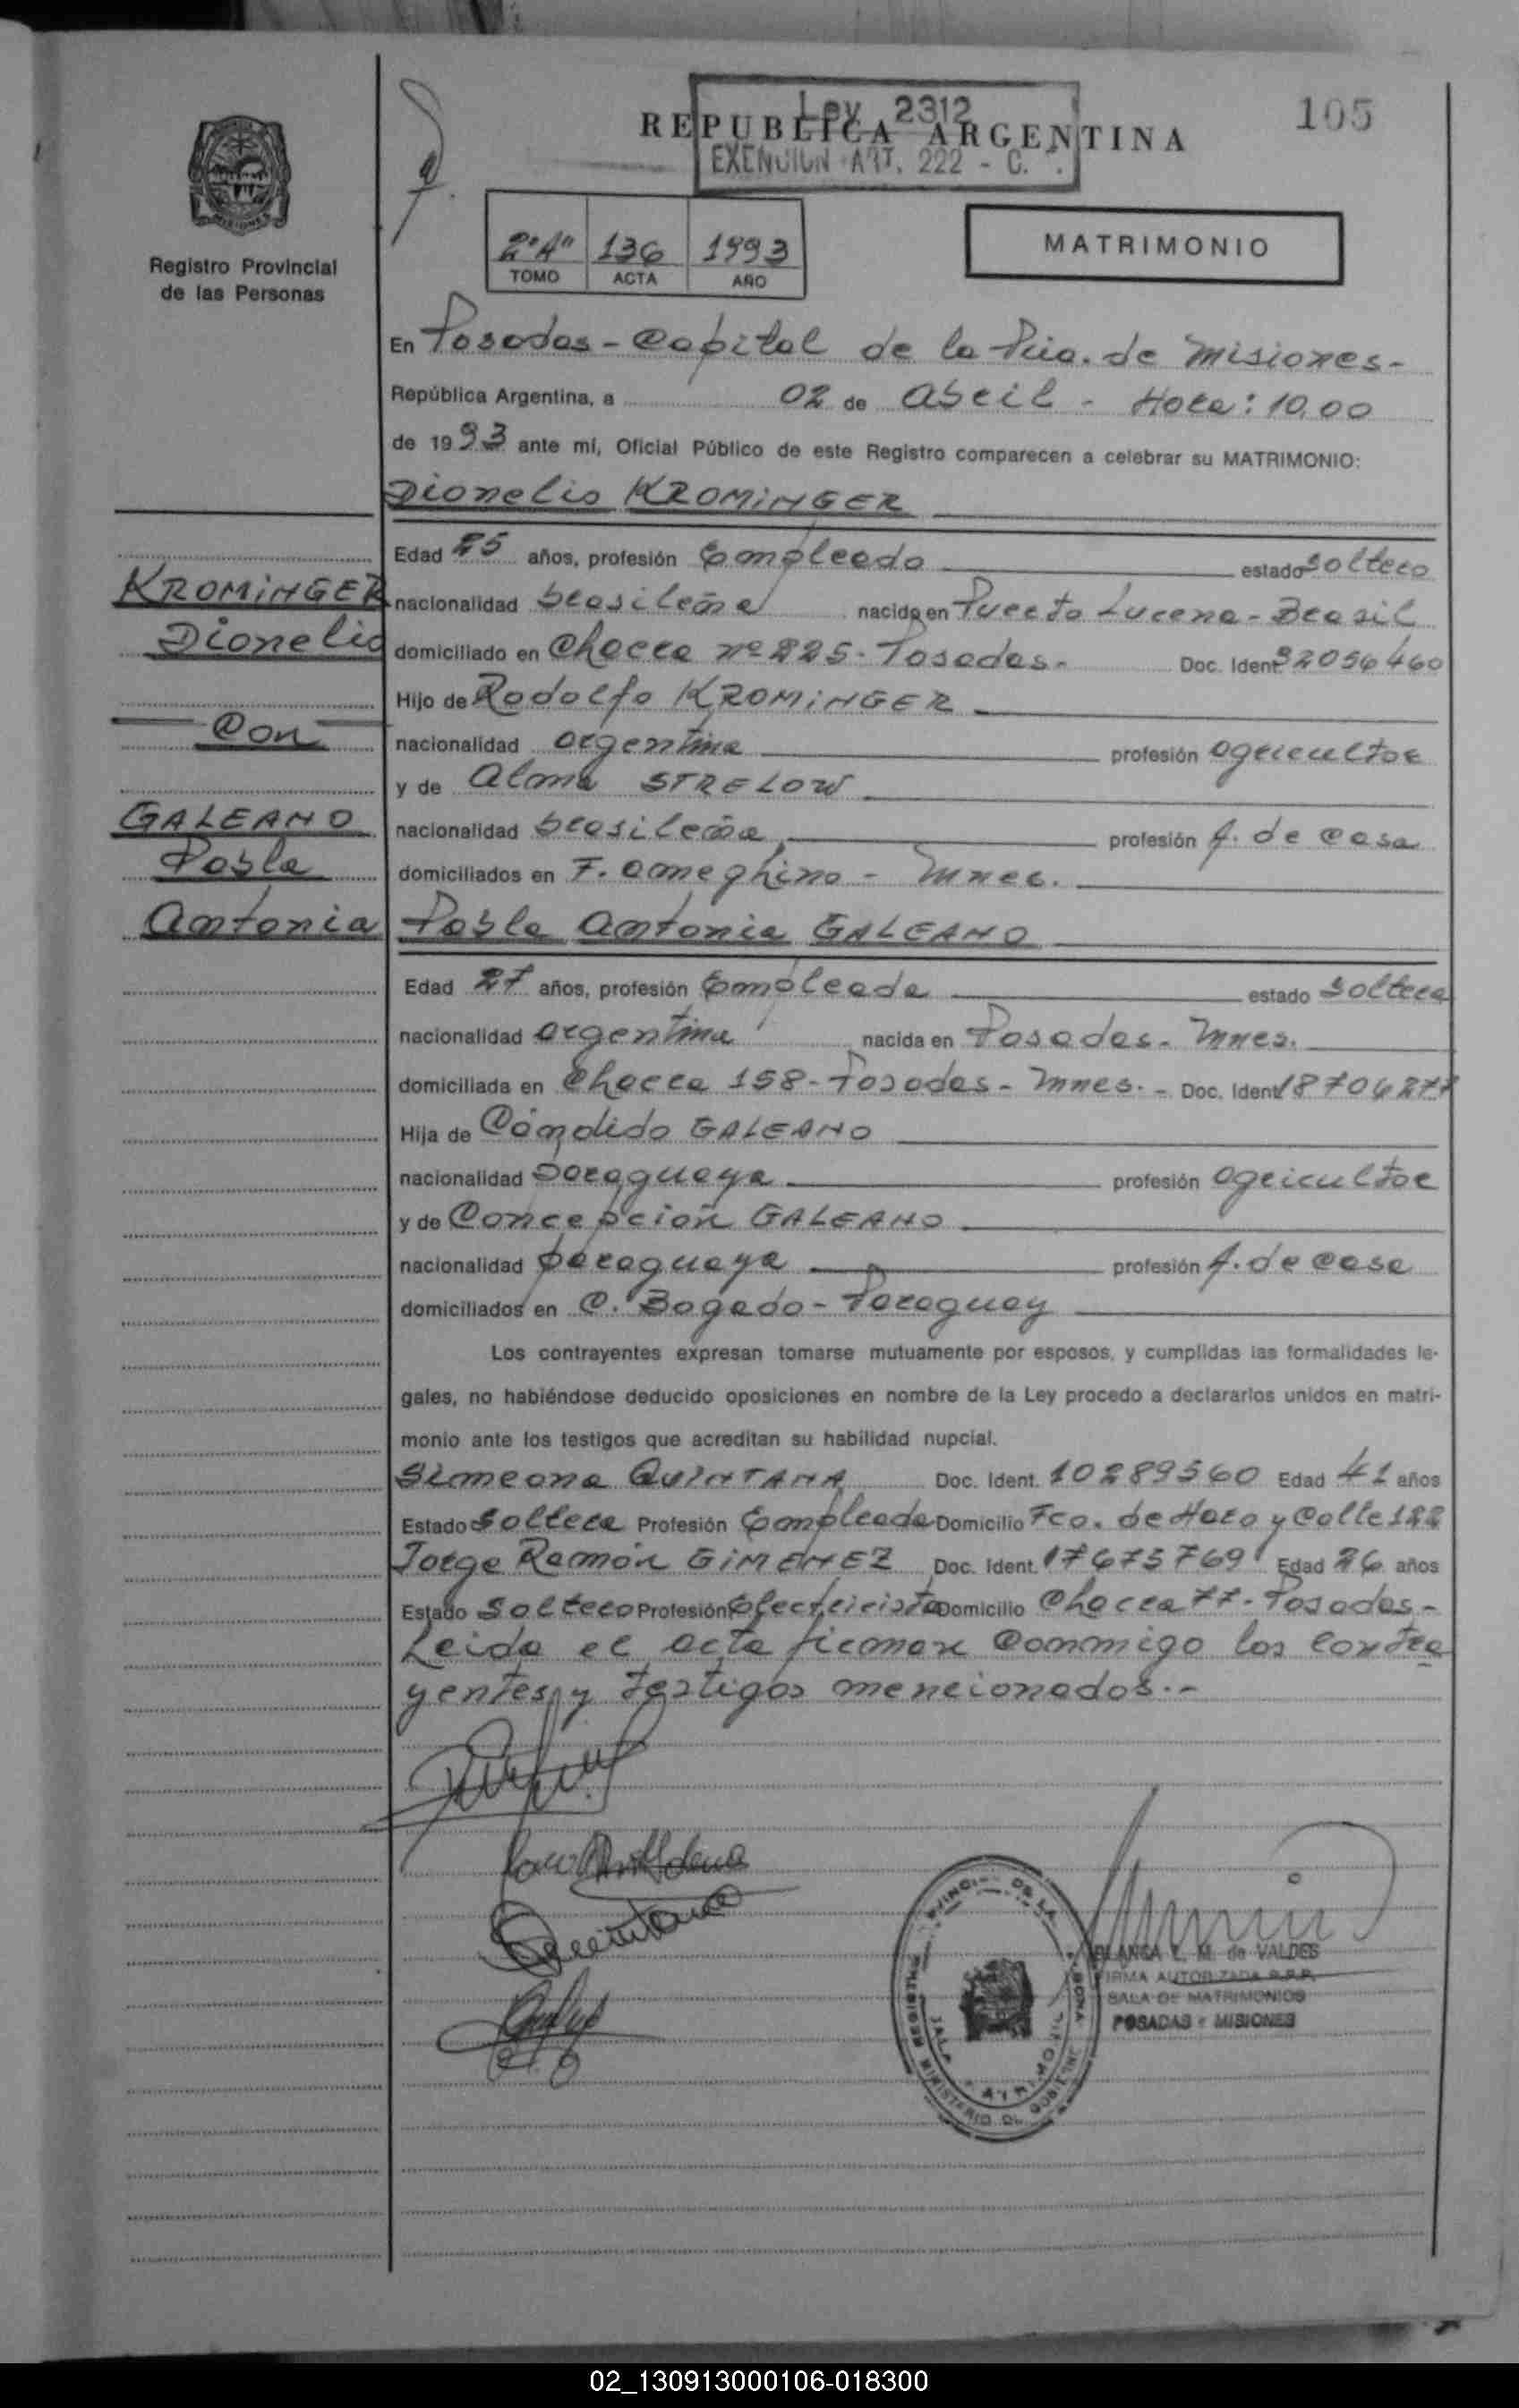 105
REPUBLICA ARGENTINA
Ley 2312
EXENCION ART. 222 - C.
MATRIMONIO
2º"A" 136 1993
TOMO ACTA AÑO
Registro Provincial
de las Personas
En Posadas - Capital de la Pcia. de Misiones-
República Argentina, a 02 de Abril - Hora: 10,00
de 1993 ante mí, Oficial Público de este Registro comparecen a celebrar su MATRIMONIO:
Dionelio KROMINGER
Edad 25 años, profesión Empleado estado soltero
KROMINGER
nacionalidad brasileña nacido en Puerto Lucena - Brasil
Dionelio
domiciliado en Chacra nº 225 - Posadas- Doc. Ident. 92056460
Hijo de Rodolfo KROMINGER
Con
nacionalidad argentina profesión agricultor
y de Alma STRELOW
GALEANO
nacionalidad brasileña profesión A. de Casa
Pabla
domiciliados en F. Ameghino - Mnes.
Antonia
Pabla Antonia GALEANO
Edad 27 años, profesión Empleada estado soltera
nacionalidad argentina nacida en Posadas - Mnes.
domiciliada en Chacra 158 - Posadas - Mnes. - Doc. Ident.
Hija de Cándido GALEANO
nacionalidad paraguaya profesión agricultor
y de Concepción GALEANO
nacionalidad paraguaya profesión A. de Casa
domiciliados en C. Bogado - Paraguay
Los contrayentes expresan tomarse mutuamente por esposos, y cumplidas las formalidades le-
gales, no habiéndose deducido oposiciones en nombre de la Ley procedo a declararlos unidos en matri-
monio ante los testigos que acreditan su habilidad nupcial.
Simeona QUINTANA Doc. Ident. 10289560 Edad 41 años
Estado Soltera Profesión Empleada Domicilio Fco. de Haro y Calle 122
Jorge Ramón GIMENEZ Doc. Ident. 17675769 Edad 26 años
Estado Soltero Profesión Electricista Domicilio Chacra 77 - Posadas-
Leida el acta firman Conmigo los contra
yentes y testigos mencionados.-
Quintana
BLANCA L. M. de VALDES
FIRMA AUTORIZADA R.P.P.
SALA DE MATRIMONIOS
POSADAS - MISIONES
02_130913000106-018300